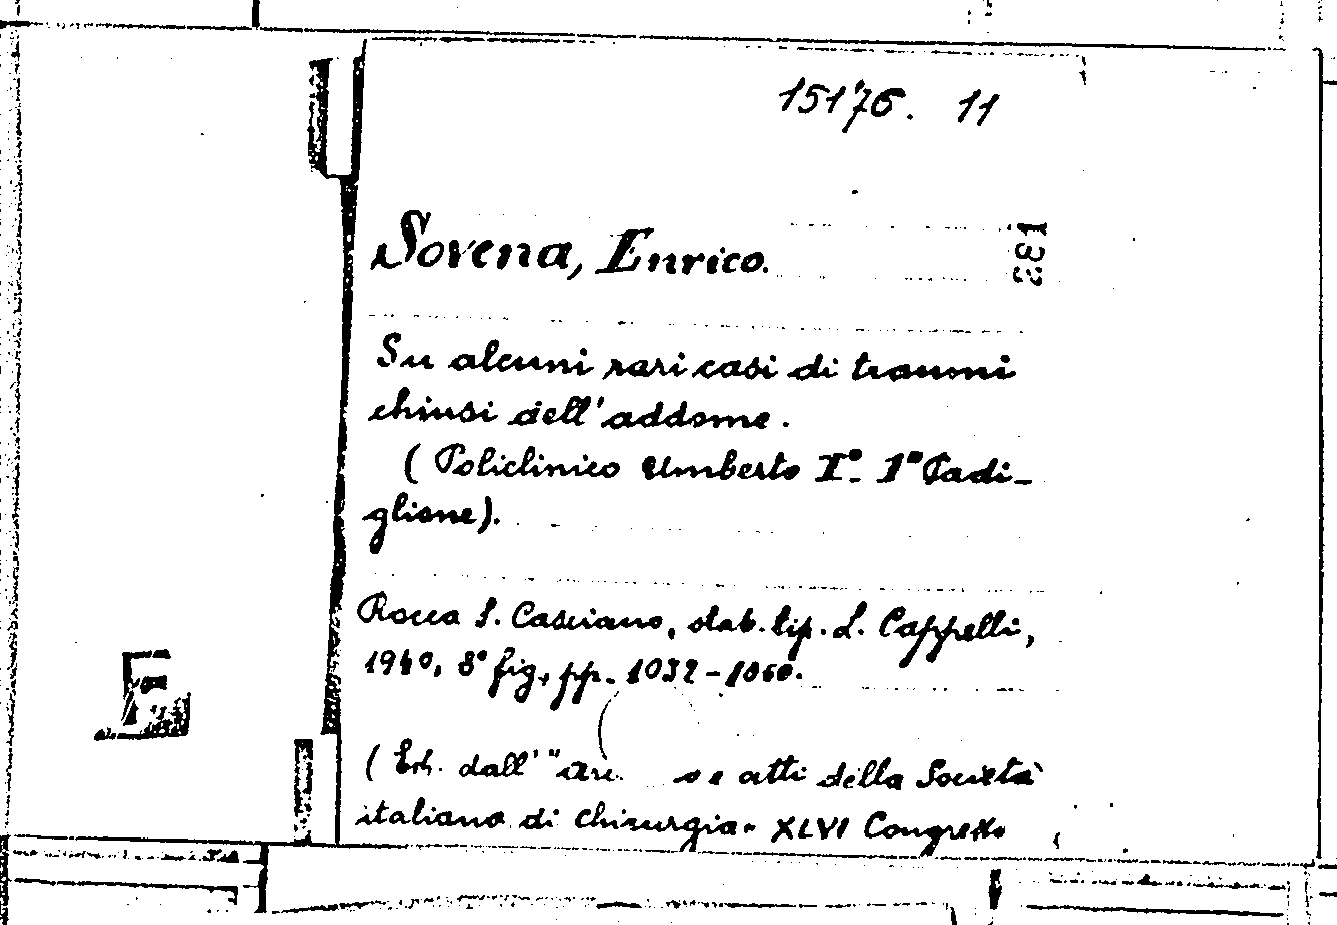 15176. 11
Sovena, Enrico.
133
Su alcuni rari casi di traumi
chiusi dell'addome.
(Policlinico Umberto I° 1° Padi-
glione).
Rocca S. Casciano, stab. tip. L. Cappelli,
1940, 8° fig., pp. 1032-1060.
(Estr. dall' " o e atti della Società
italiana di chirurgia" XLVI Congresso